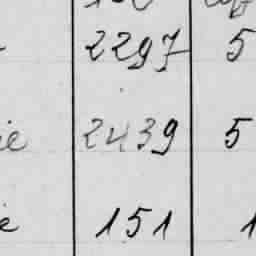 2297 5
ie 2439 5
e 151 1